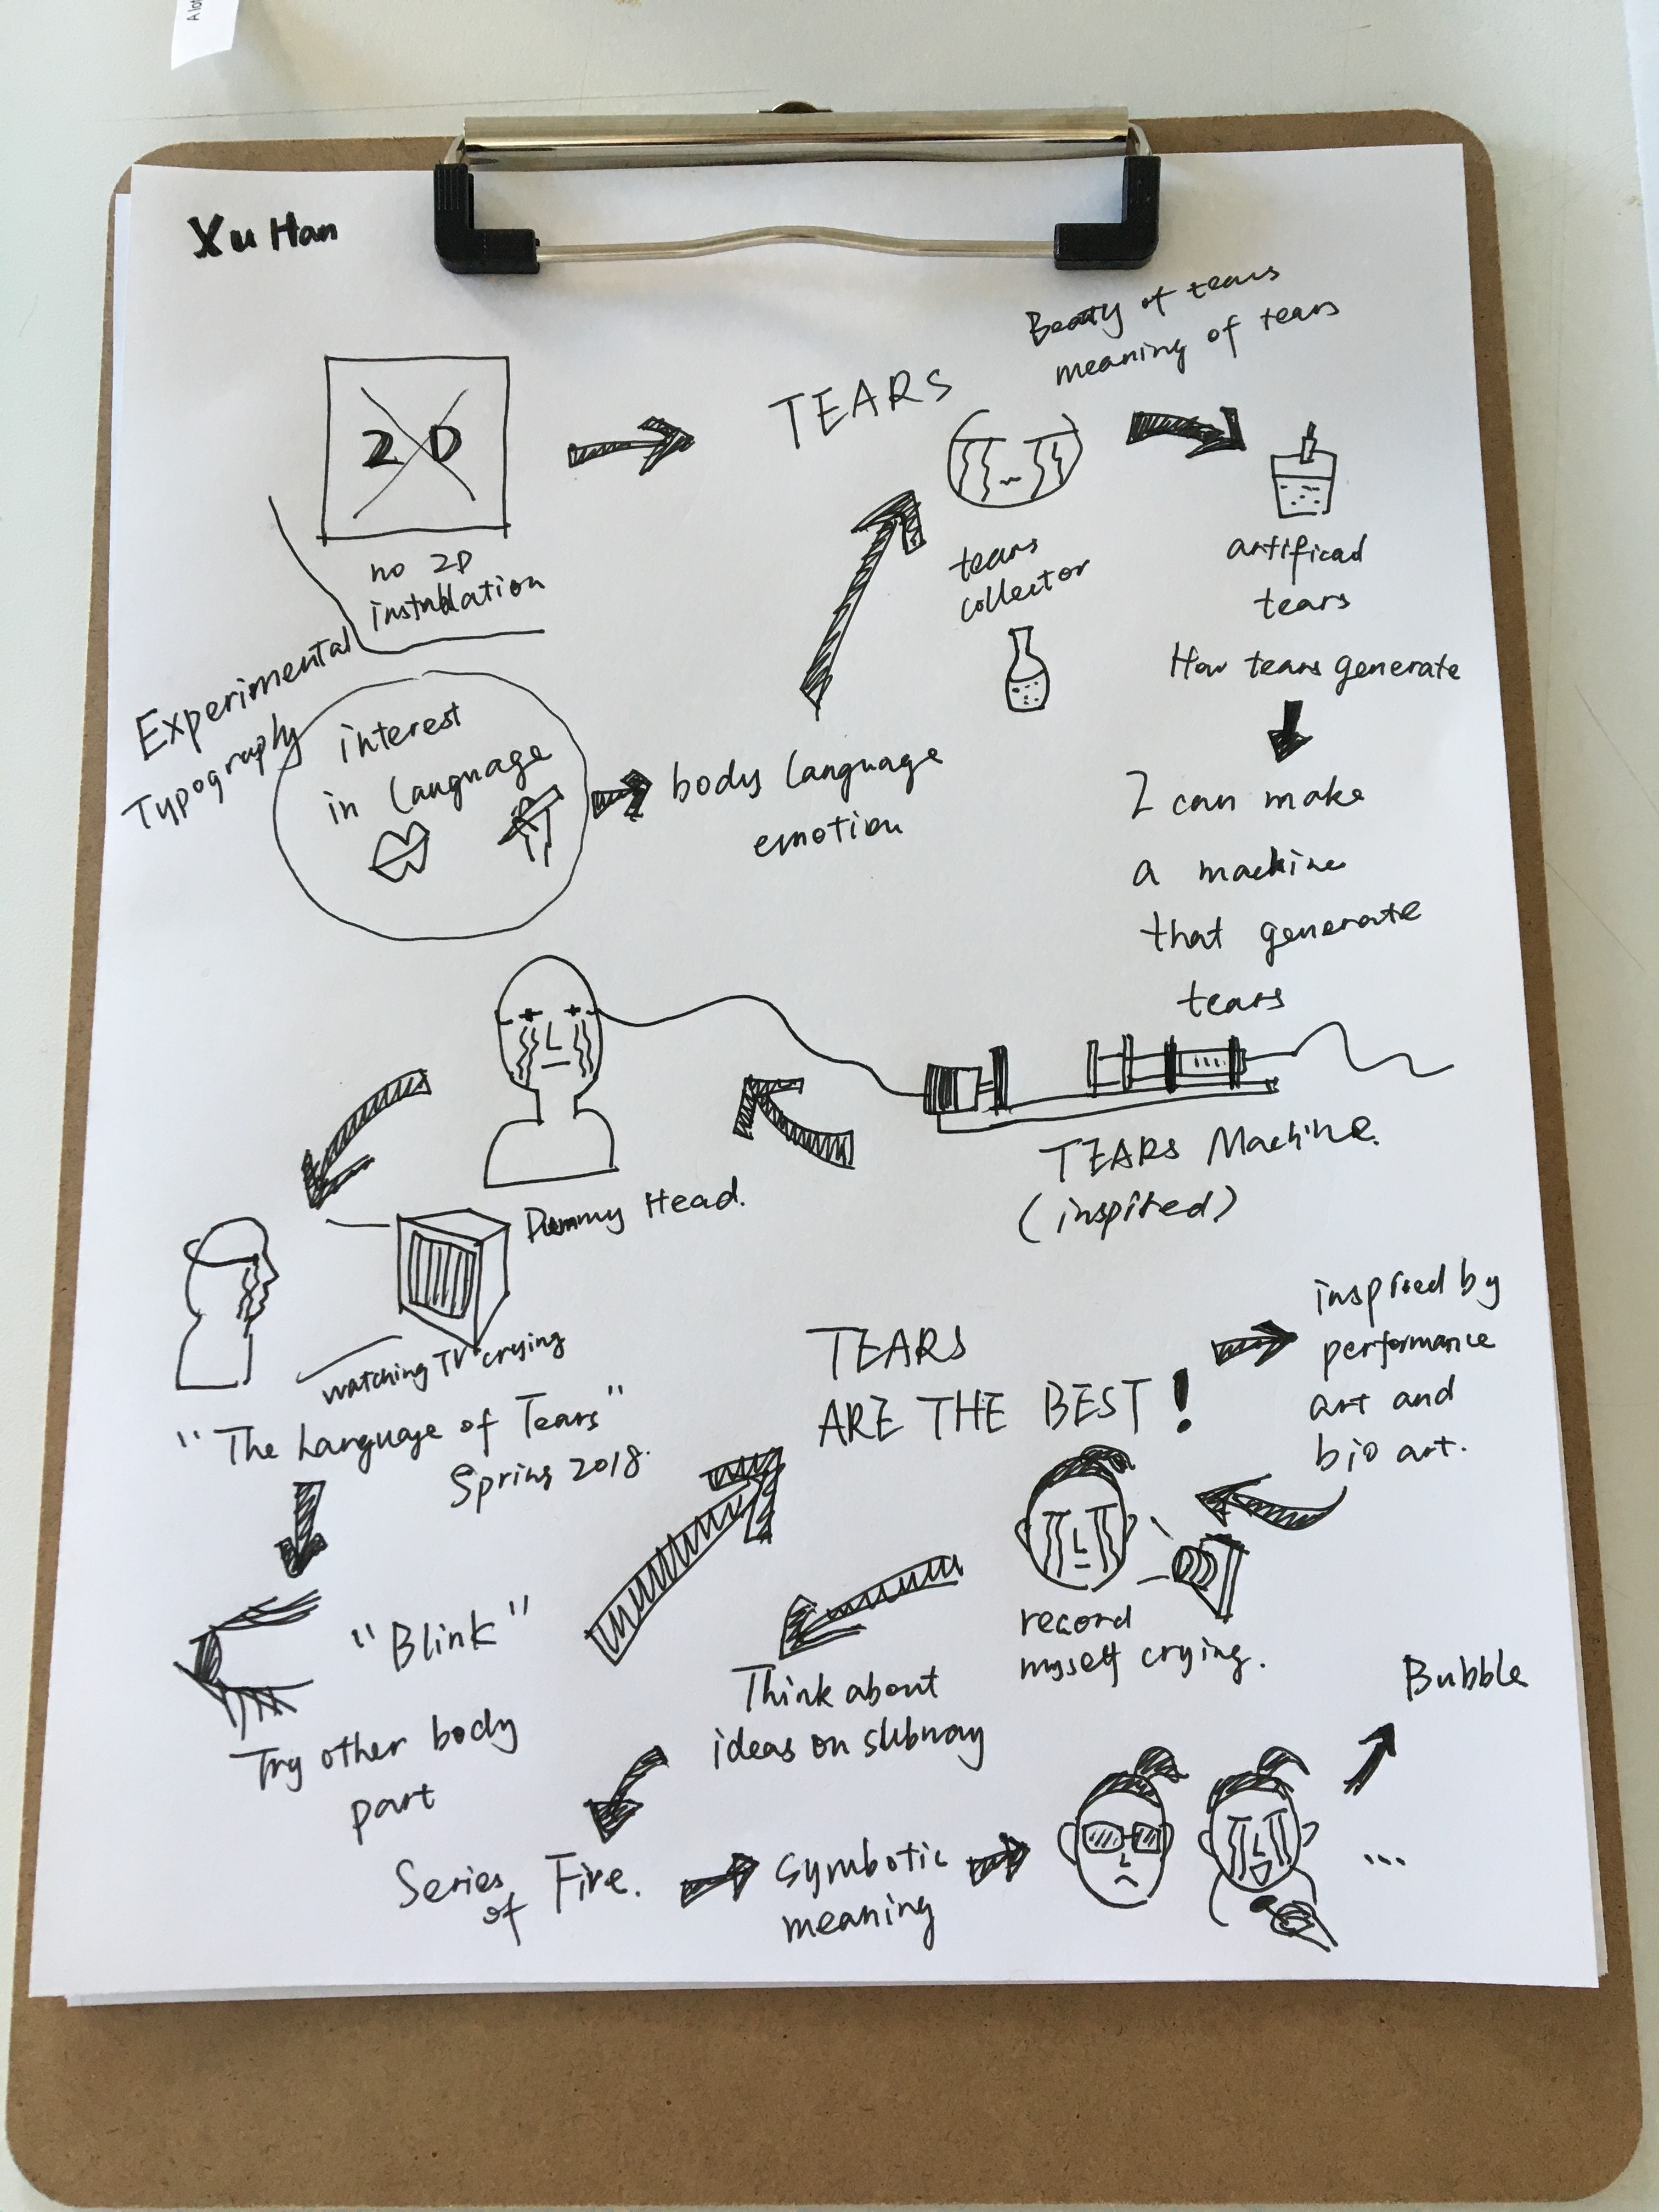 A lot
Xu Han
2D
no 2D
installation
Experimental
Typography
interest
in language
body language
emotion
TEARS
Beauty of tears
meaning of tears
tears
collector
artificad
tears
How tears generate
I can make
a machine
that generate
tears
TEARS Machine.
(inspired)
Dummy Head.
watching TV crying
"The Language of Tears"
Spring 2018.
"Blink"
Try other body
part
TEARS
ARE THE BEST!
inspired by
performance
art and
bio art.
record
myself crying.
Think about
ideas on subway
Series
of Five.
symbotic
meaning
Bubble
...